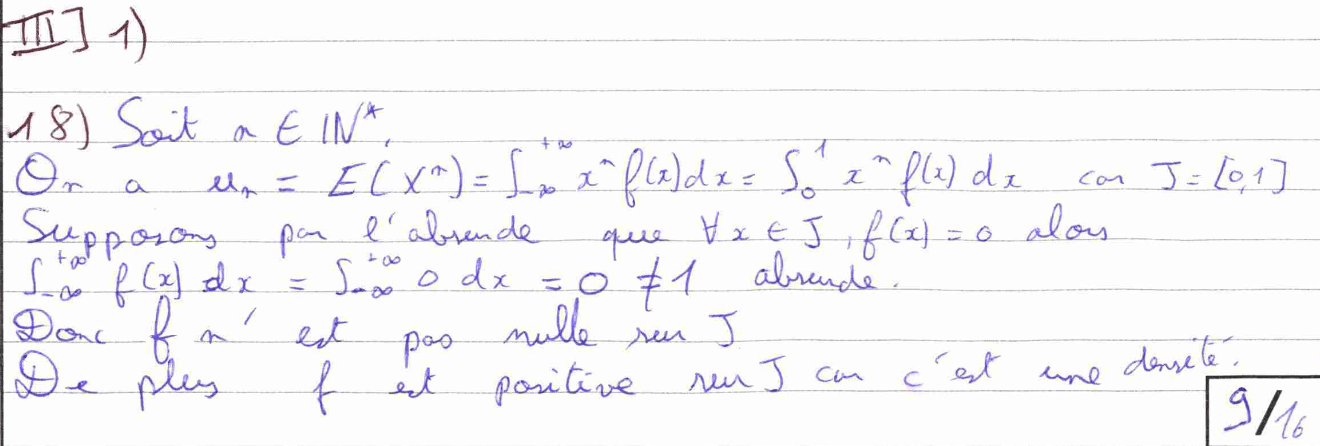 III] 1)
18) Soit n ∈ IN*.
On a u_n = E(X^n) = ∫_{-∞}^{+∞} x^n f(x) dx = ∫_0^1 x^n f(x) dx car J = [0,1]
Supposons par l'absurde que ∀ x ∈ J, f(x) = 0 alors
∫_{-∞}^{+∞} f(x) dx = ∫_{-∞}^{+∞} 0 dx = 0 ≠ 1 absurde.
Donc f n'est pas nulle sur J
De plus f est positive sur J car c'est une densité.
9/16